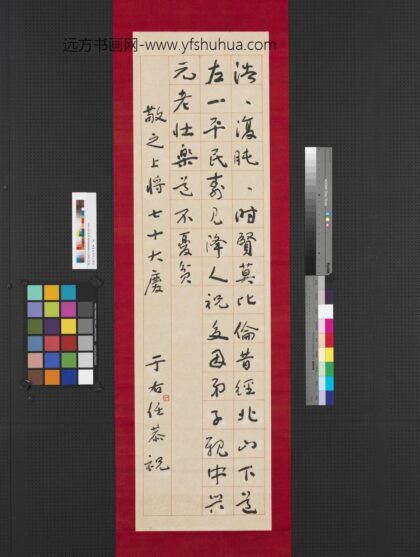 远方书画网-www.yfshuhua.com
浩、復肫、時賢莫比倫昔經北山下道
左一平民壽見降人祝多因弟子親中興
元老壮樂道不憂貧
敬之上将七十大慶
于右任恭祝